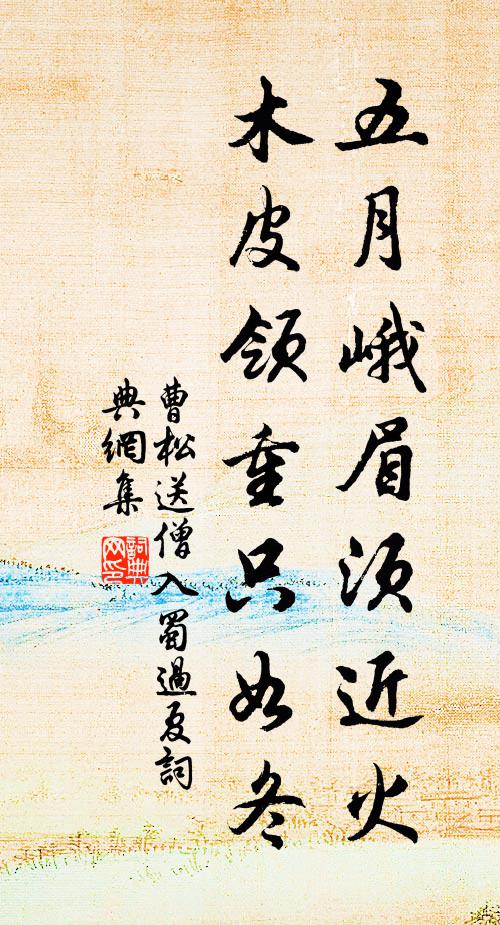 五月峨眉須近火
木皮領重只如冬
曹松送僧入蜀過夏詞
典網集
詞典網印